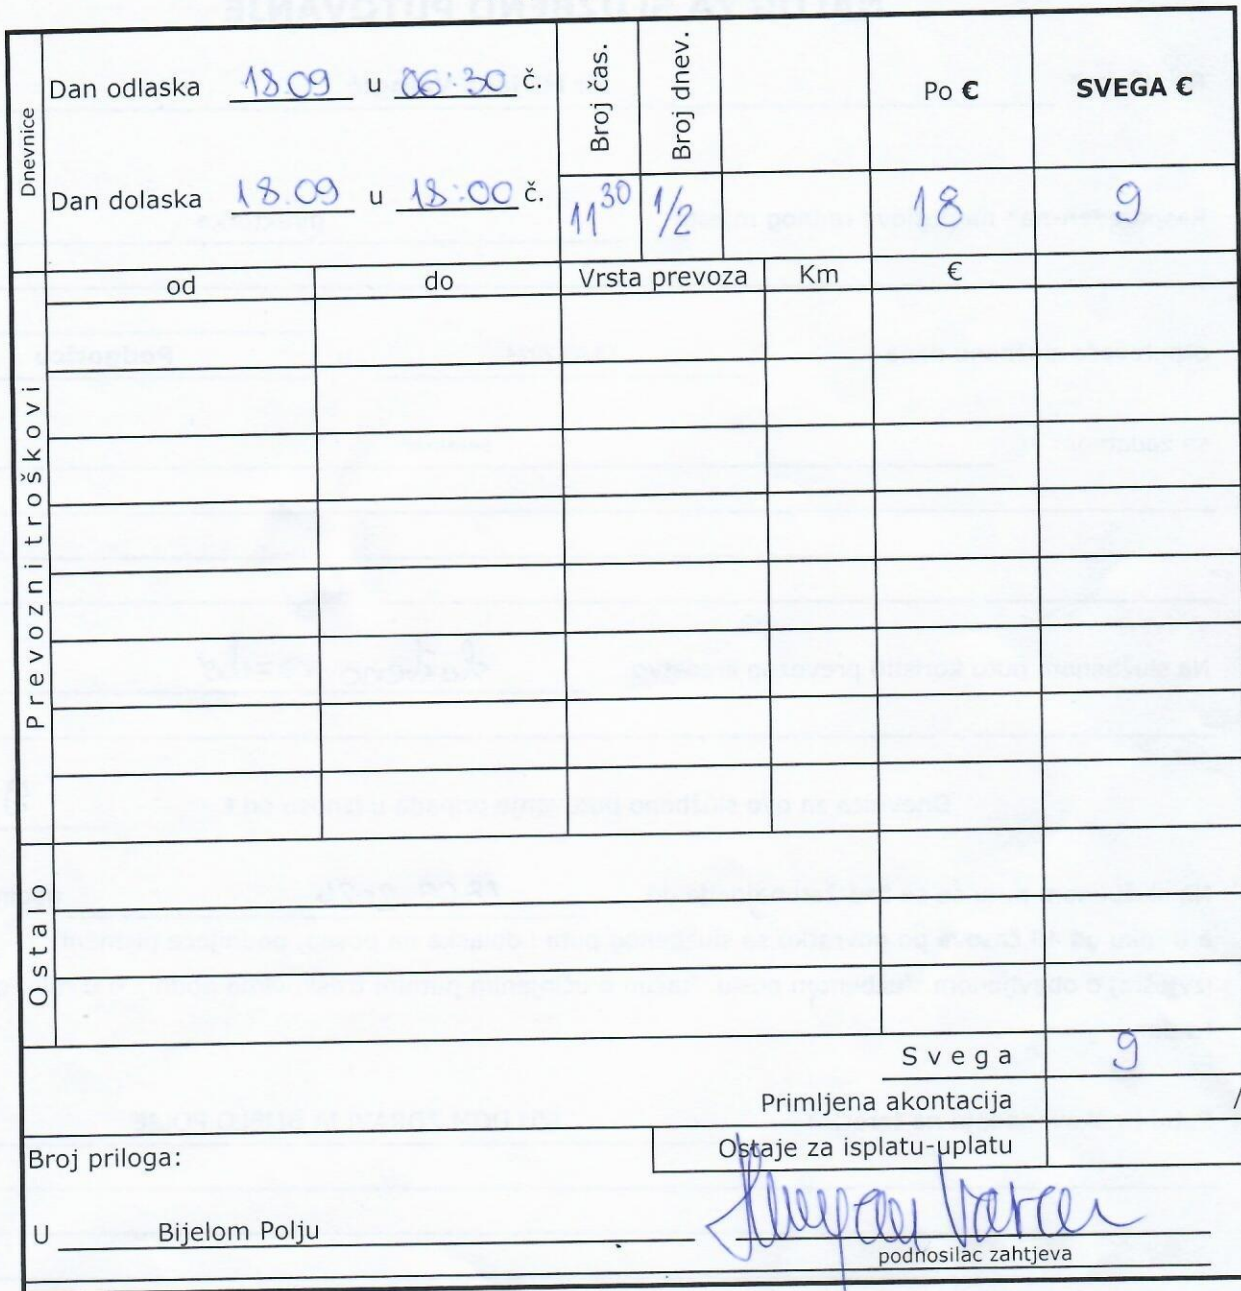 Dnevnice
Dan odlaska 18.09 u 06:30 č.
Broj čas.
Broj dnev.
Po €
SVEGA €
Dan dolaska 18.09 u 18:00 č.
11 30 1/2 18 9
Prevozni troškovi
od do Vrsta prevoza Km €
Ostalo
Svega 9
Primljena akontacija /
Ostaje za isplatu-uplatu
Broj priloga:
U Bijelom Polju
podnosilac zahtjeva